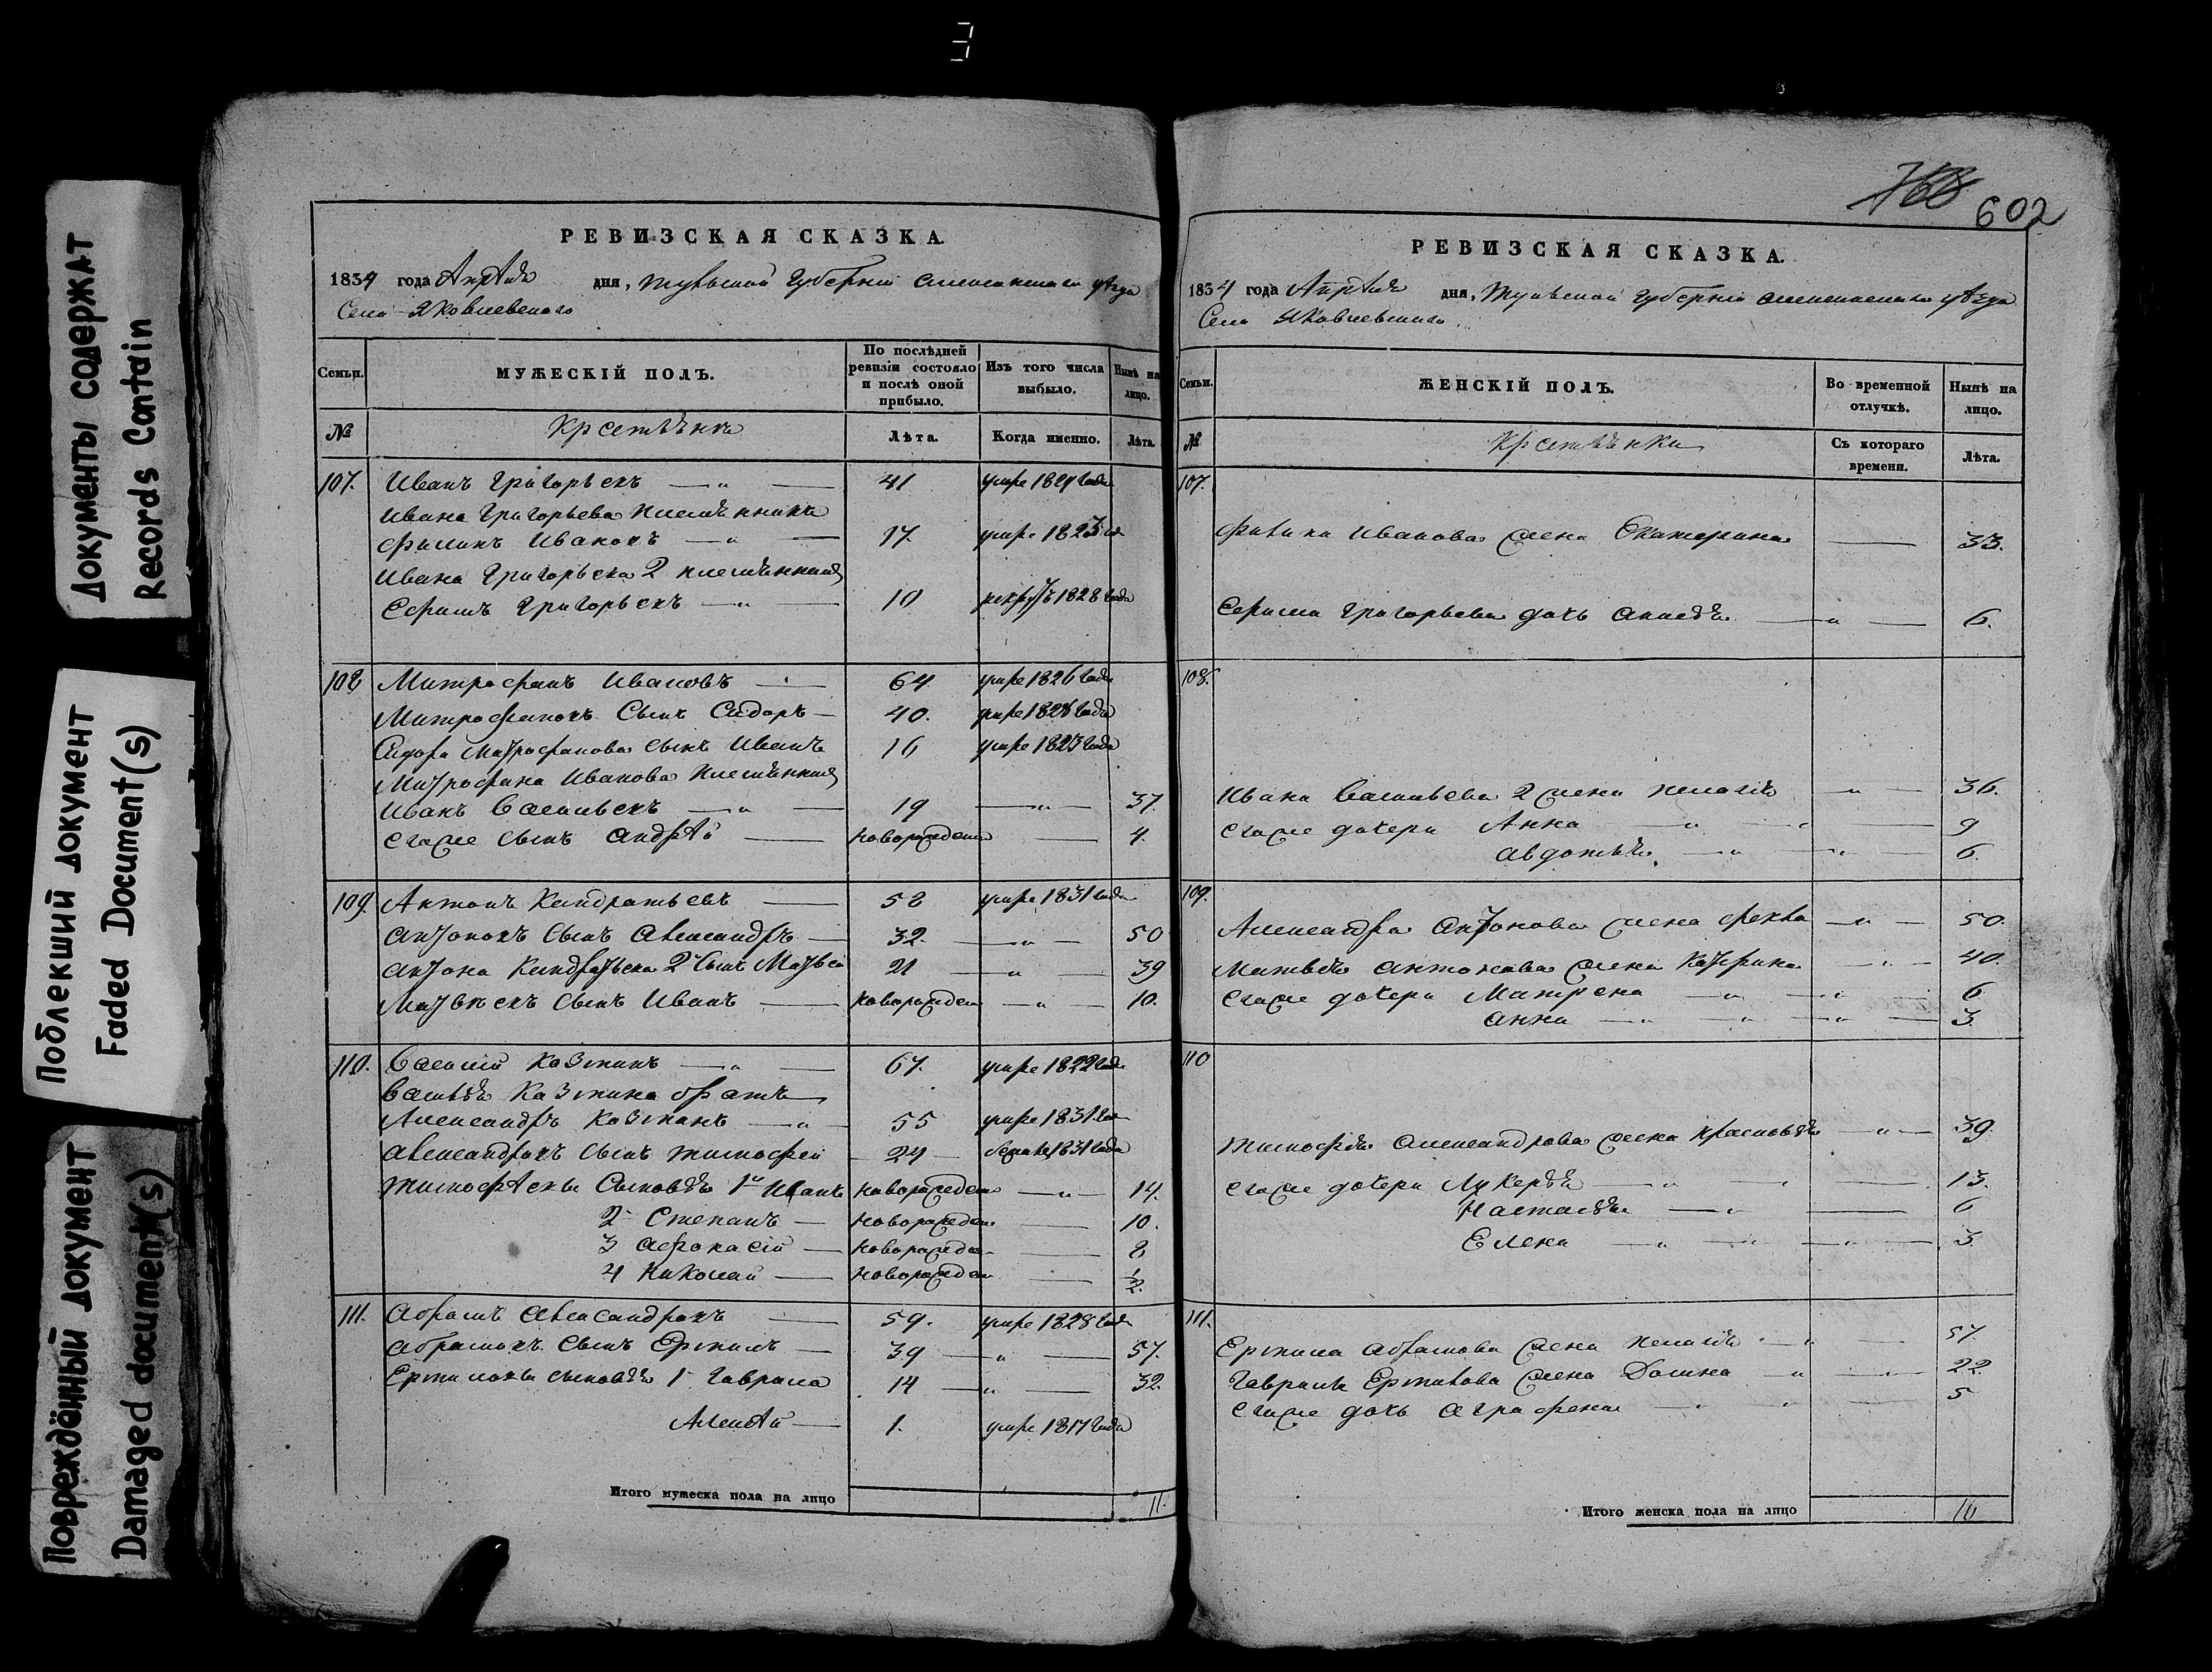 Документы содержат
Records Contain
Поблекший документ
Faded Document(s)
Повреждённый документ
Damaged document(s)
РЕВИЗСКАЯ СКАЗКА.
1834 года Апрѣля дня, Тульской Губерніи уѣзда
Села Яковлевскаго
Семьи.
МУЖЕСКІЙ ПОЛЪ.
По послѣдней ревизіи состояло и послѣ оной прибыло.
Изъ того числа выбыло.
Нынѣ на лицо.
№
Лѣта.
Когда именно.
Лѣта.
107. Иванъ Григорьевъ 41 умре 1829 года
Ивана Григорьева племянники
Филипъ Ивановъ 17 умре 1823
Ивана Григорьева 2 племянникъ
Ефимъ Григорьевъ 10 рекрутъ 1828 года
108 Митрофанъ Ивановъ 64 умре 1826 года
Митрофановъ сынъ Сидоръ 40. умре 1828 года
Сидора Митрофанова сынъ Иванъ 16 умре 1823 года
Митрофана Иванова племянникъ
Иванъ Васильевъ 19 37.
Егоже сынъ Андрѣй новорожденъ 4.
109. Антонъ Кондратьевъ 52 умре 1831 года
Антоновъ сынъ Александръ 32. 50
Антона Кондратьева 2 сынъ Матвей 21 39
Матвѣевъ сынъ Иванъ новорожден 10.
110. Василій Козминъ 67. умре 1822 года
Василья Козмина братъ
Александръ Козминъ 55 умре 1831 года
Александровъ сынъ Тимофей 24 1831 года
Тимофѣевы сыновья 1й Иванъ новорожден 14.
2 Степанъ новорожден 10.
3 Афонасій новорожден 8
4 Николай новорожден 1/2
111. Абрамъ Александровъ 59. умре 1828 года
Абрамовъ сынъ Ермилъ 39 57.
Ермиловы сыновья 1 Гаврила 14 32.
Алексѣй 1. умре 1817 года
Итого мужеска пола на лицо 11.
768
602
РЕВИЗСКАЯ СКАЗКА.
1834 года Апрѣля дня, Тульской Губерніи уѣзда
Села Яковлевскаго
Семьи.
ЖЕНСКІЙ ПОЛЪ.
Во временной отлучкѣ.
Нынѣ на лицо.
№
Съ котораго времени.
Лѣта.
107.
Филипа Иванова жена Екатерина 33.
Ефима Григорьева дочь 6.
108.
Ивана Васильева 2 жена Пелагея 36.
Егоже дочери Анна 9
Авдотья 6.
109.
Александра Антонова жена Фекла 50.
Матвѣя Антонова жена Катерина 40.
Егоже дочери Матрена 6
Анна 3.
110
Тимофея Александрова жена 39
Егоже дочери Лукерья 13.
Настасья 6
Елена 3
111.
Ермила Абрамова жена Пелагея 57.
Гаврилы Ермилова жена Домна 22.
Егоже дочь Аграфена 5
Итого женска пола на лицо 16